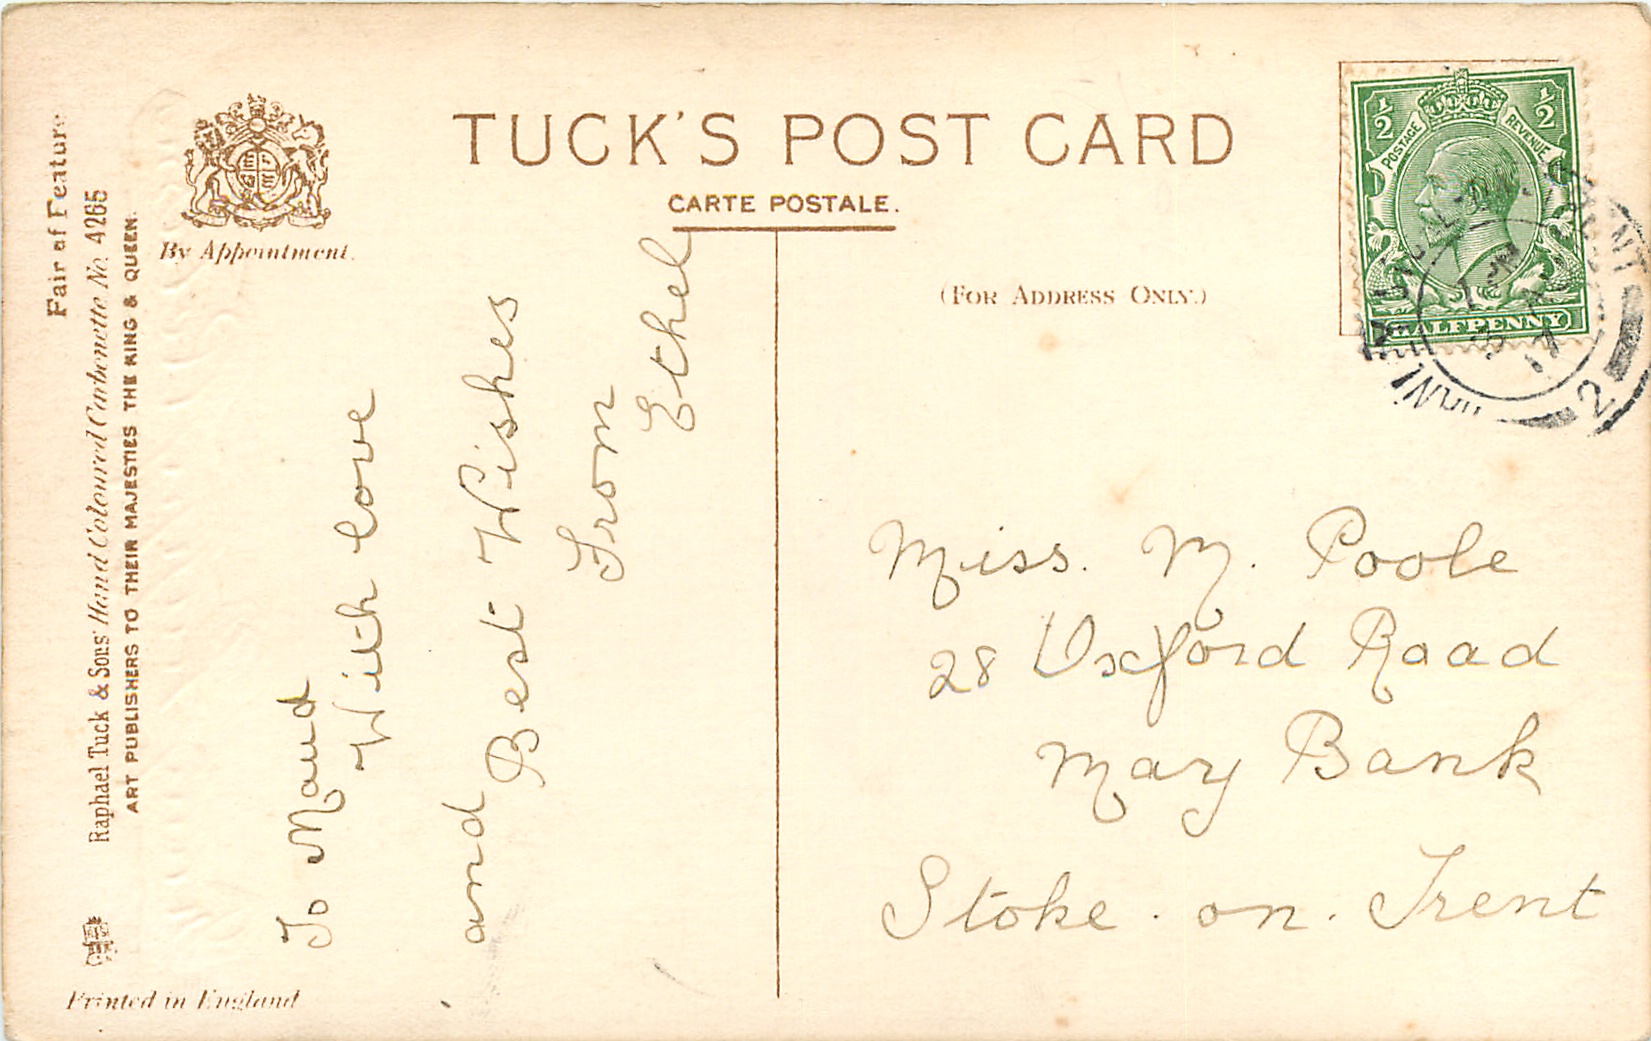 Fair of Feature
Raphael Tuck & Sons' Hand Coloured Carbonette No. 4265
ART PUBLISHERS TO THEIR MAJESTIES THE KING & QUEEN.
By Appointment.
Printed in England
TUCK'S POST CARD
CARTE POSTALE.
(FOR ADDRESS ONLY.)
½ ½
POSTAGE REVENUE
HALFPENNY
2
To Maud
With love
and Best Wishes
From
Ethel
Miss. M. Poole
28 Oxford Road
May Bank
Stoke. on. Trent